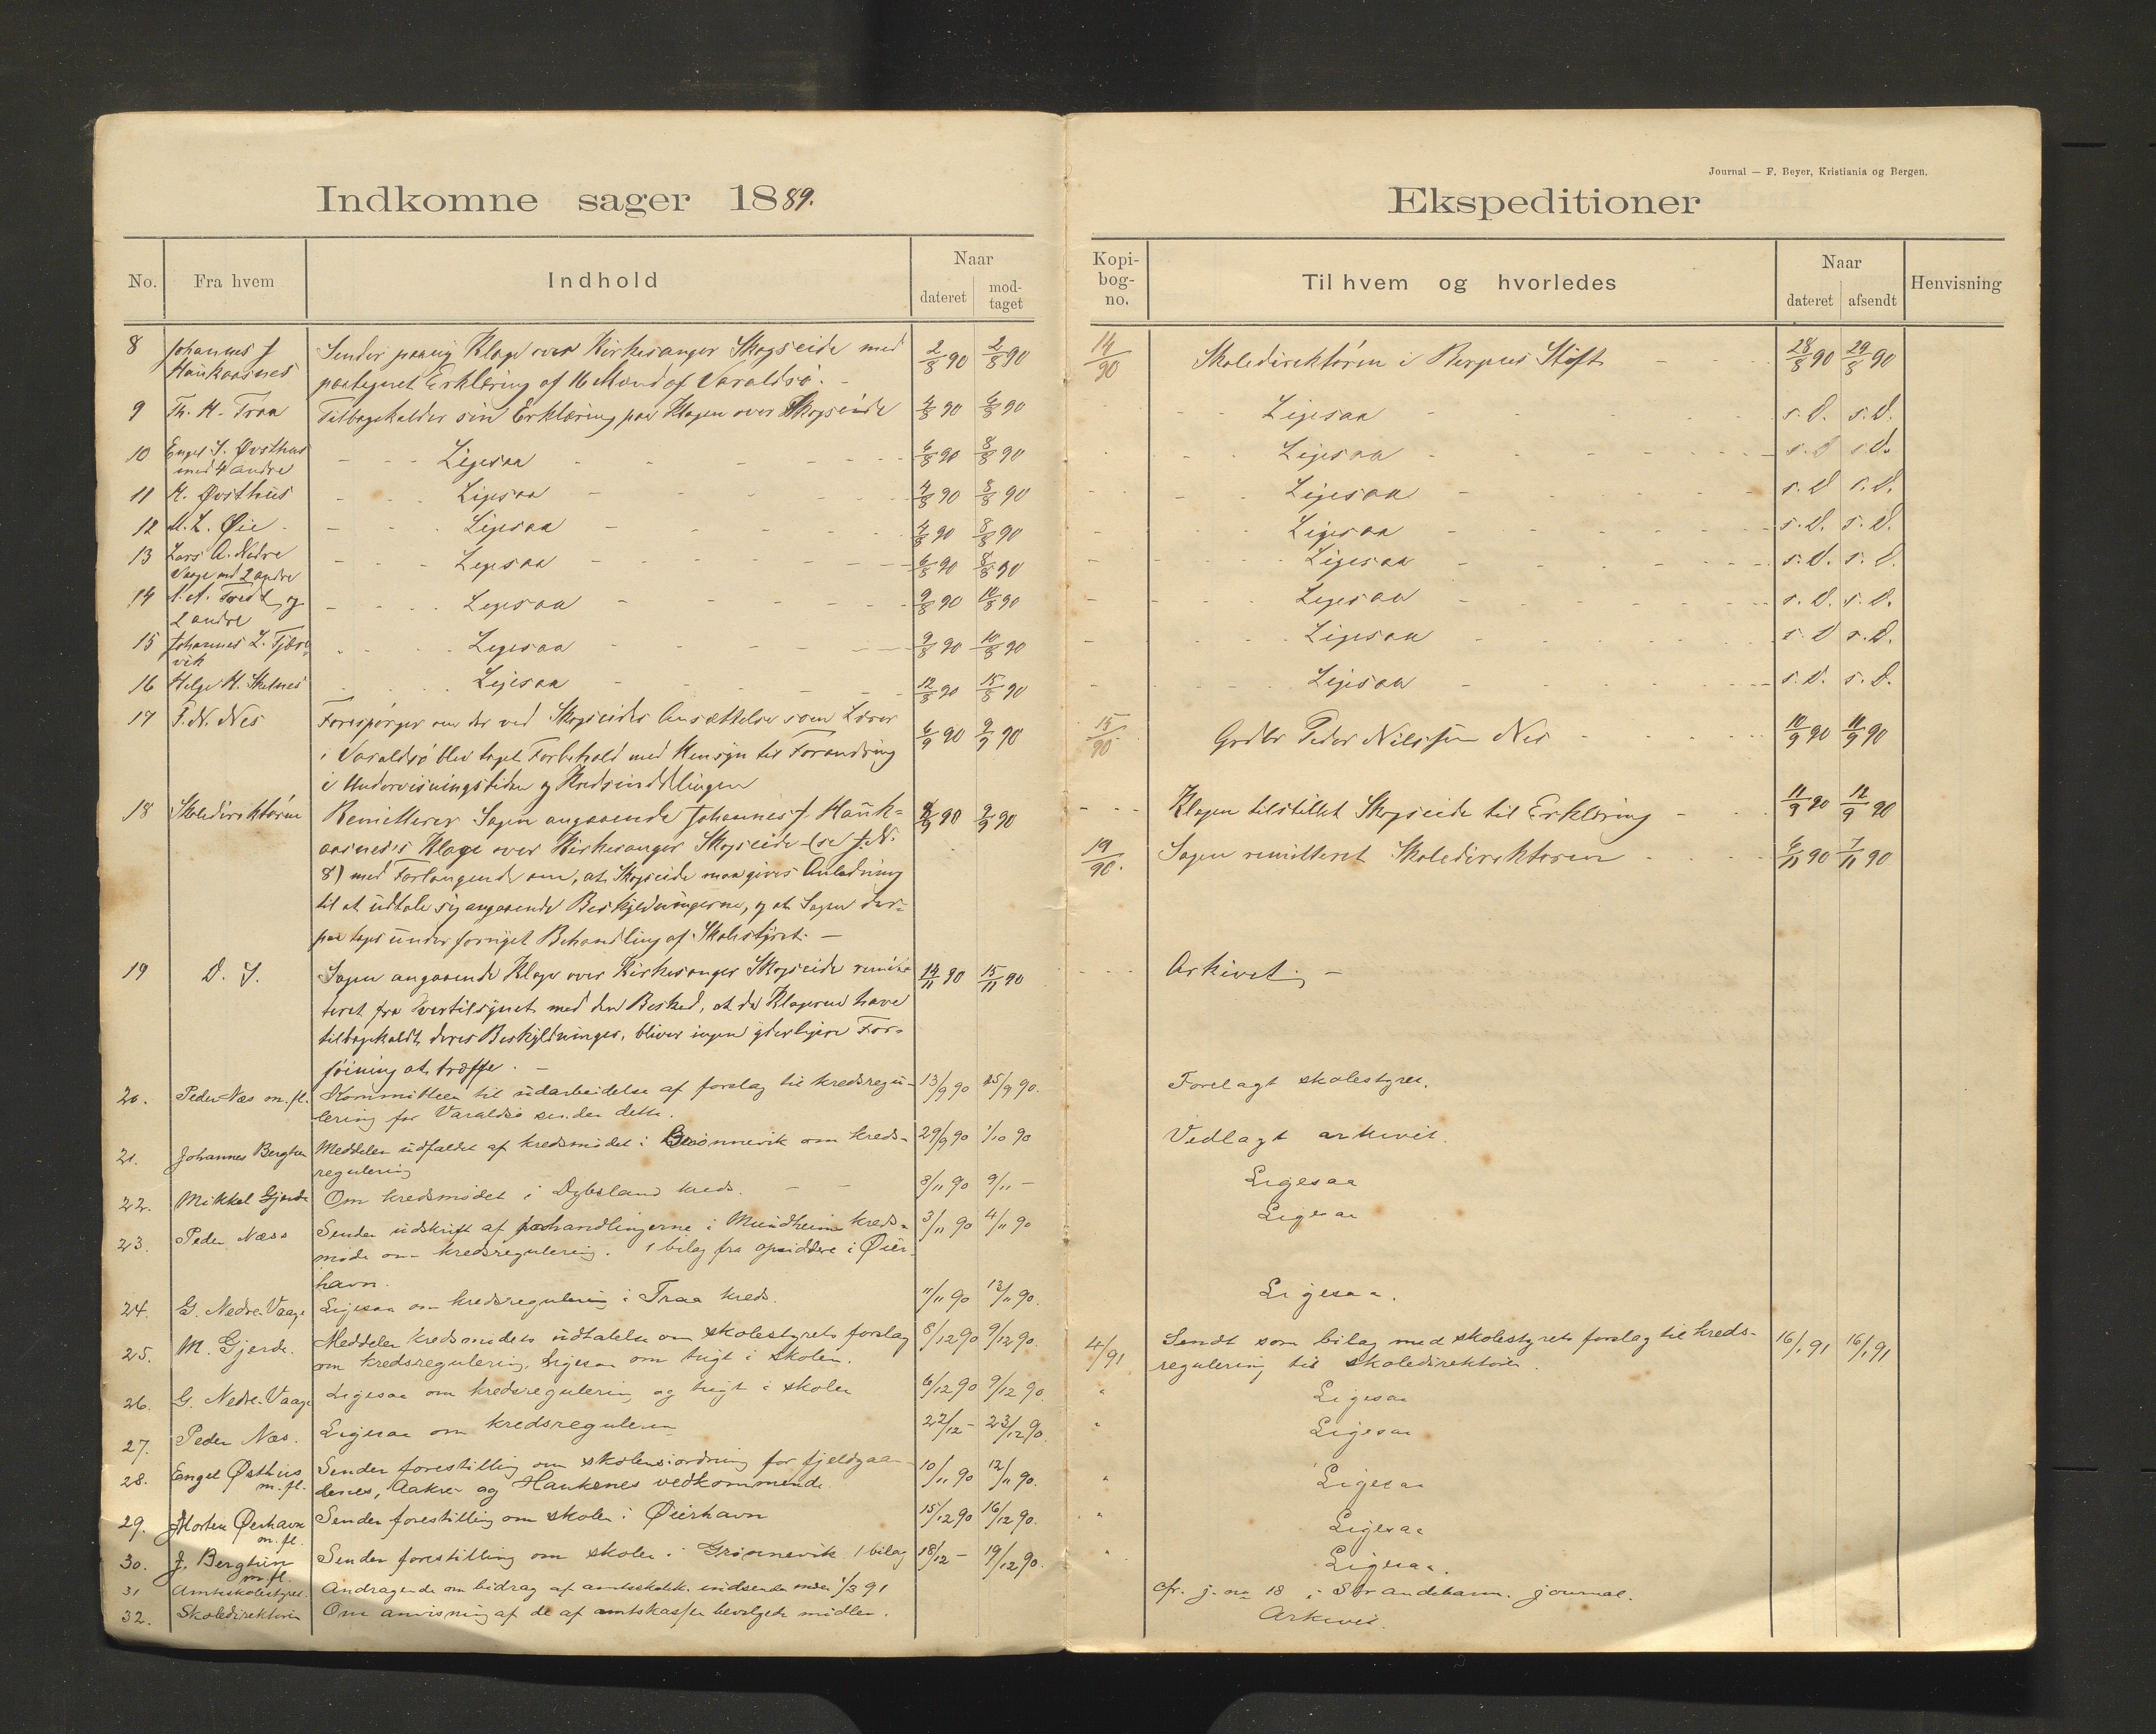 Journal — F. Beyer, Kristiania og Bergen.
Indkomne sager 1889.
No. Fra hvem Indhold Naar dateret modtaget
8 Johannes J Haukaasnes Sender paany Klage over Kirkesanger Skogseide med 2/8 90 2/8 90
paategnet Erklæring af 16 Mænd af Varaldsø. —
9 Th. H. Traa Tilbagekalder sin Erklæring paa Klagen over Skogseide 4/8 90 6/8 90
10 Engel J. Østhus med 4 andre Ligesaa 6/8 90 8/8 90
11 H. Østhus Ligesaa 4/8 90 8/8 90
12 M. L. Øie Ligesaa 4/8 90 8/8 90
13 Lars A. Nedre Vaage med 2 andre Ligesaa 6/8 90 8/8 90
14 og 2 andre Ligesaa 9/8 90 10/8 90
15 Johannes L. Ligesaa 9/8 90 10/8 90
16 Helge H. Skutnes Ligesaa 12/8 90 15/8 90
17 P. N. Nes Forespørger om der ved Skogseides Ansættelse som Lærer 6/9 90 9/9 90
i Varaldsø blev taget Forbehold med Hensyn til Forandring
i Undervisningstiden og Kredsinddelingen
18 Skoledirektøren Remitterer Sagen angaaende Johannes J. Hauk- 8/9 90 9/9 90
aasnes's Klage over Kirkesanger Skogseide (se J. N.
8) med Forlangende om, at Skogseide maa gives Anledning
til at udtale sig angaaende Beskyldningerne, og at Sagen der-
paa tages under fornyet Behandling af Skolestyret. —
19 D. S. Sagen angaaende Klage over Kirkesanger Skogseide remit- 14/11 90 15/11 90
teret fra Overtilsynet med den Besked, at da Klagerne have
tilbagekaldt deres Beskyldninger, bliver ingen yderligere For-
føining at træffe. —
20. Peder Næs m. fl. Kommitteen til udarbeidelse af forslag til kredsregu- 13/9 90 25/9 90.
lering for Varaldsø sender dette.
21. Johannes Bergtun Meddeler udfaldet af kredsmødet i Grønnevik om kreds- 29/9 90 1/10 90
regulering
22. Mikkel Gjerde Om kredsmødet i Dybsland kreds. — — 3/11 90 9/11 —
23. Peder Næss Sender udskrift af forhandlingerne i Mundheim kreds- 3/11 90 4/11 90
møde om kredsregulering. 1 bilag fra opsiddere i Øier-
havn.
24. G. Nedre-Vaage Ligesaa om kredsregulering i Traa kreds. 11/11 90 13/11 90.
25. M. Gjerde. Meddeler kredsmødets udtalelse om skolestyrets forslag 8/12 90 9/12 90.
om kredsregulering. Ligesaa om tugt i skolen.
26. G. Nedre-Vaage Ligesaa om kredsregulering og tugt i skolen 6/12 90 9/12 90.
27. Peder Næs. Ligesaa om kredsregulering 22/12 — 23/12 90.
28. Engel Østhus m. fl. Sender forestilling om skolens ordning for fjeldgaar- 10/11 90 12/11 90.
denes, Aakre- og Haukenes vedkommende
29. Morten Øierhavn m. fl. Sender forestilling om skolen i Øierhavn 15/12 90 16/12 90.
30. J. Bergtun m. fl. Sender forestilling om skolen i Grønnevik 1 bilag 18/12 — 19/12 90.
31 Amtsskolestyret. Andragende om bidrag af amtsskolek. indsendes inden 1/3 91
32. Skoledirektøren Om anvisning af de af amtskassen bevilgede midler.
Ekspeditioner
Kopibog-no. Til hvem og hvorledes Naar dateret afsendt Henvisning
14/90 Skoledirektøren i Bergens Stift 28/8 90 29/8 90
Ligesaa s. D. s. D.
Ligesaa s. D s. D.
Ligesaa s. D s. D.
Ligesaa s. D. s. D.
Ligesaa s. D. s. D.
Ligesaa s. D. s. D.
Ligesaa s. D s. D.
Ligesaa s. D. s. D.
15/90 Grdbr Peder Nilssen Nes 10/9 90 11/9 90
Klagen tilstillet Skogseide til Erklæring 11/9 90 12/9 90
19/90. Sagen remitteret Skoledirektøren 6/11 90 7/11 90
Arkivet. —
Forelagt skolestyret.
Vedlagt arkivet.
Ligesaa
Ligesaa
Ligesaa.
4/91 Sendt som bilag med skolestyrets forslag til kreds- 16/1 91 16/1 91
regulering til skoledirektøren.
" Ligesaa
" Ligesaa
" Ligesaa
" Ligesaa
" Ligesaa.
cfr. j. no 18 i Strandebarm. journal.
Arkivet.